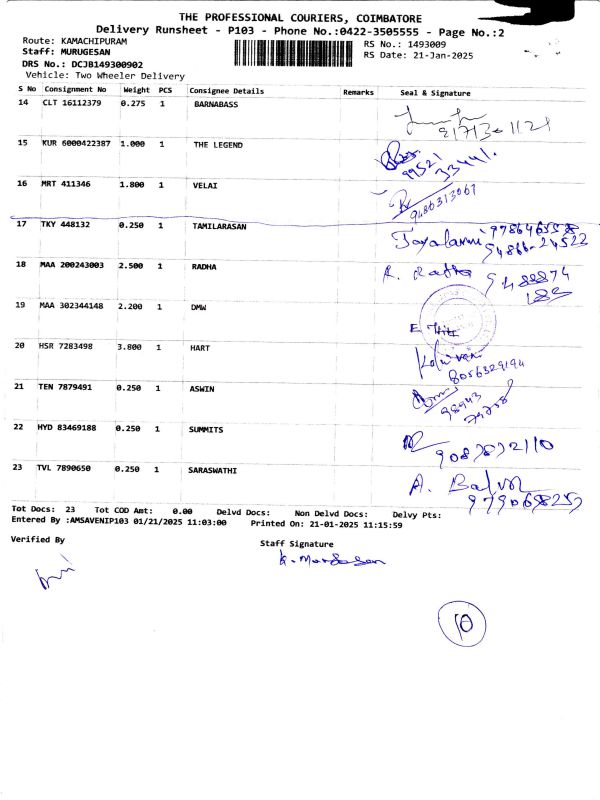 THE PROFESSIONAL COURIERS, COIMBATORE
Delivery Runsheet - P103 - Phone No.:0422-3505555 - Page No.:2
Route: KAMACHIPURAM
RS No.: 1493009
Staff: MURUGESAN
RS Date: 21-Jan-2025
DRS No.: DCJB149300902
Vehicle: Two Wheeler Delivery
S No Consignment No Weight PCS Consignee Details Remarks Seal & Signature
14 CLT 16112379 0.275 1 BARNABASS
15 KUR 6000422387 1.000 1 THE LEGEND
99521
33441
16 MRT 411346 1.800 1 VELAI
9486313067
17 TKY 448132 0.250 1 TAMILARASAN
94866-24522
18 MAA 200243003 2.500 1 RADHA
19 MAA 302344148 2.200 1 DMW
20 HSR 7283498 3.800 1 HART
8056329194
21 TEN 7879491 0.250 1 ASWIN
22 HYD 83469188 0.250 1 SUMMITS
23 TVL 7890650 0.250 1 SARASWATHI
Tot Docs: 23 Tot COD Amt: 0.00 Delvd Docs: Non Delvd Docs: Delvy Pts:
Entered By :AMSAVENIP103 01/21/2025 11:03:00 Printed On: 21-01-2025 11:15:59
Verified By
Staff Signature
10